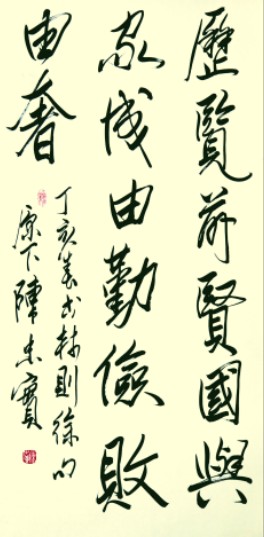 歷覽前賢國與
家成由勤儉敗
由奢
丁亥春书林則徐句
下陳志寶